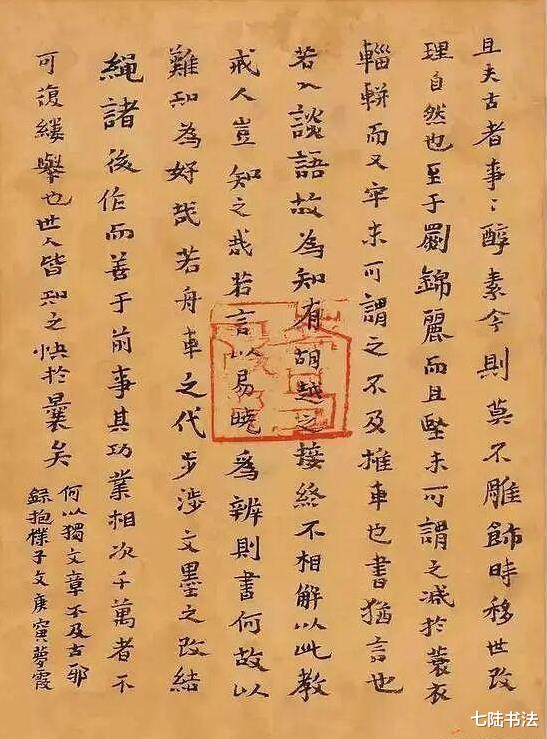 且夫古者事﹕醇素今則莫不雕飾時移世改
理自然也至于罽錦麗而且堅未可謂之减於蓑衣
輜軿而又牢未可謂之不及推車也書猶言也
若人談語故為知有胡越之接終不相解以此教
戒人豈知之哉若言以易曉為辨則書何故以
難知為好哉若舟車之代步涉文墨之改結
繩諸後作而善于前事其功業相次千萬者不
可復縷舉也世人皆知之快於曩矣
何以獨文章不及古耶
錄抱樸子文庚寅夢霞
七陆书法